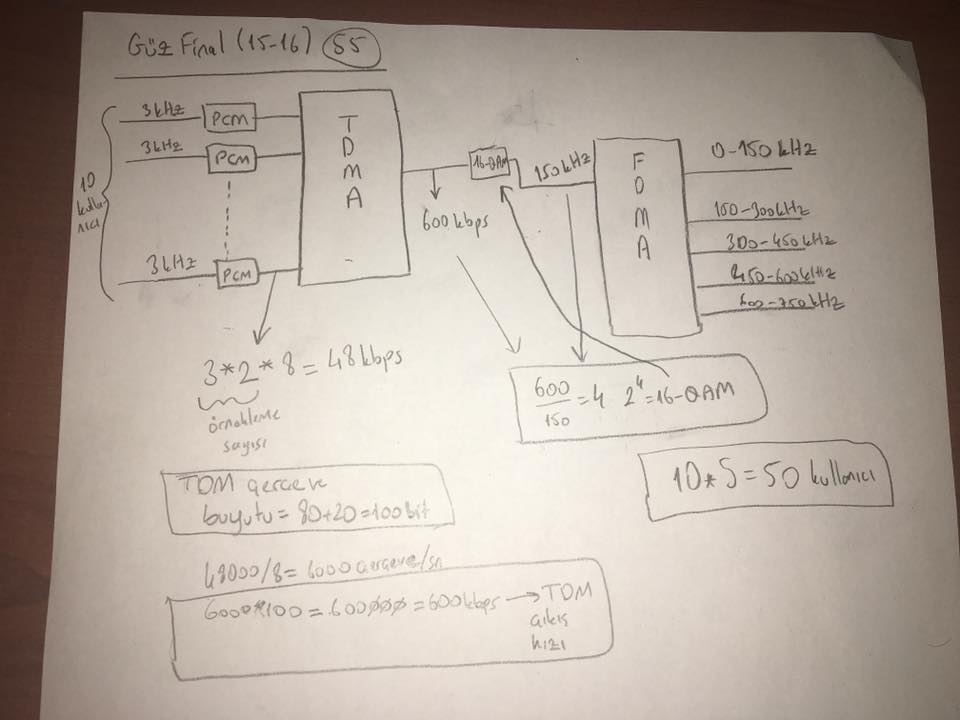 Güz Final (15-16) 55
3kHz PCM
3kHz PCM
10
kulla-
nıcı
3kHz PCM
TDMA
600 kbps
16-QAM
150kHz
FDMA
0-150 kHz
150-300kHz
300-450kHz
450-600kHz
600-750kHz
3*2*8=48kbps
örnekleme
sayısı
600/150=4 2^4=16-QAM
10*5=50 kullanıcı
TDM çerçeve
buyutu=80+20=100bit
48000/8=6000 çerçeve/sn
6000*100=600000=600kbps → TDM
akış
hızı